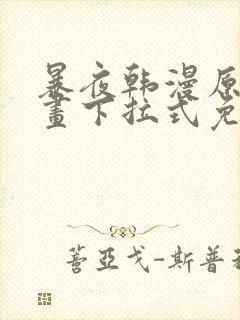 暴夜韩漫原
畫下拉式免
蓍亞戈-斯普秘